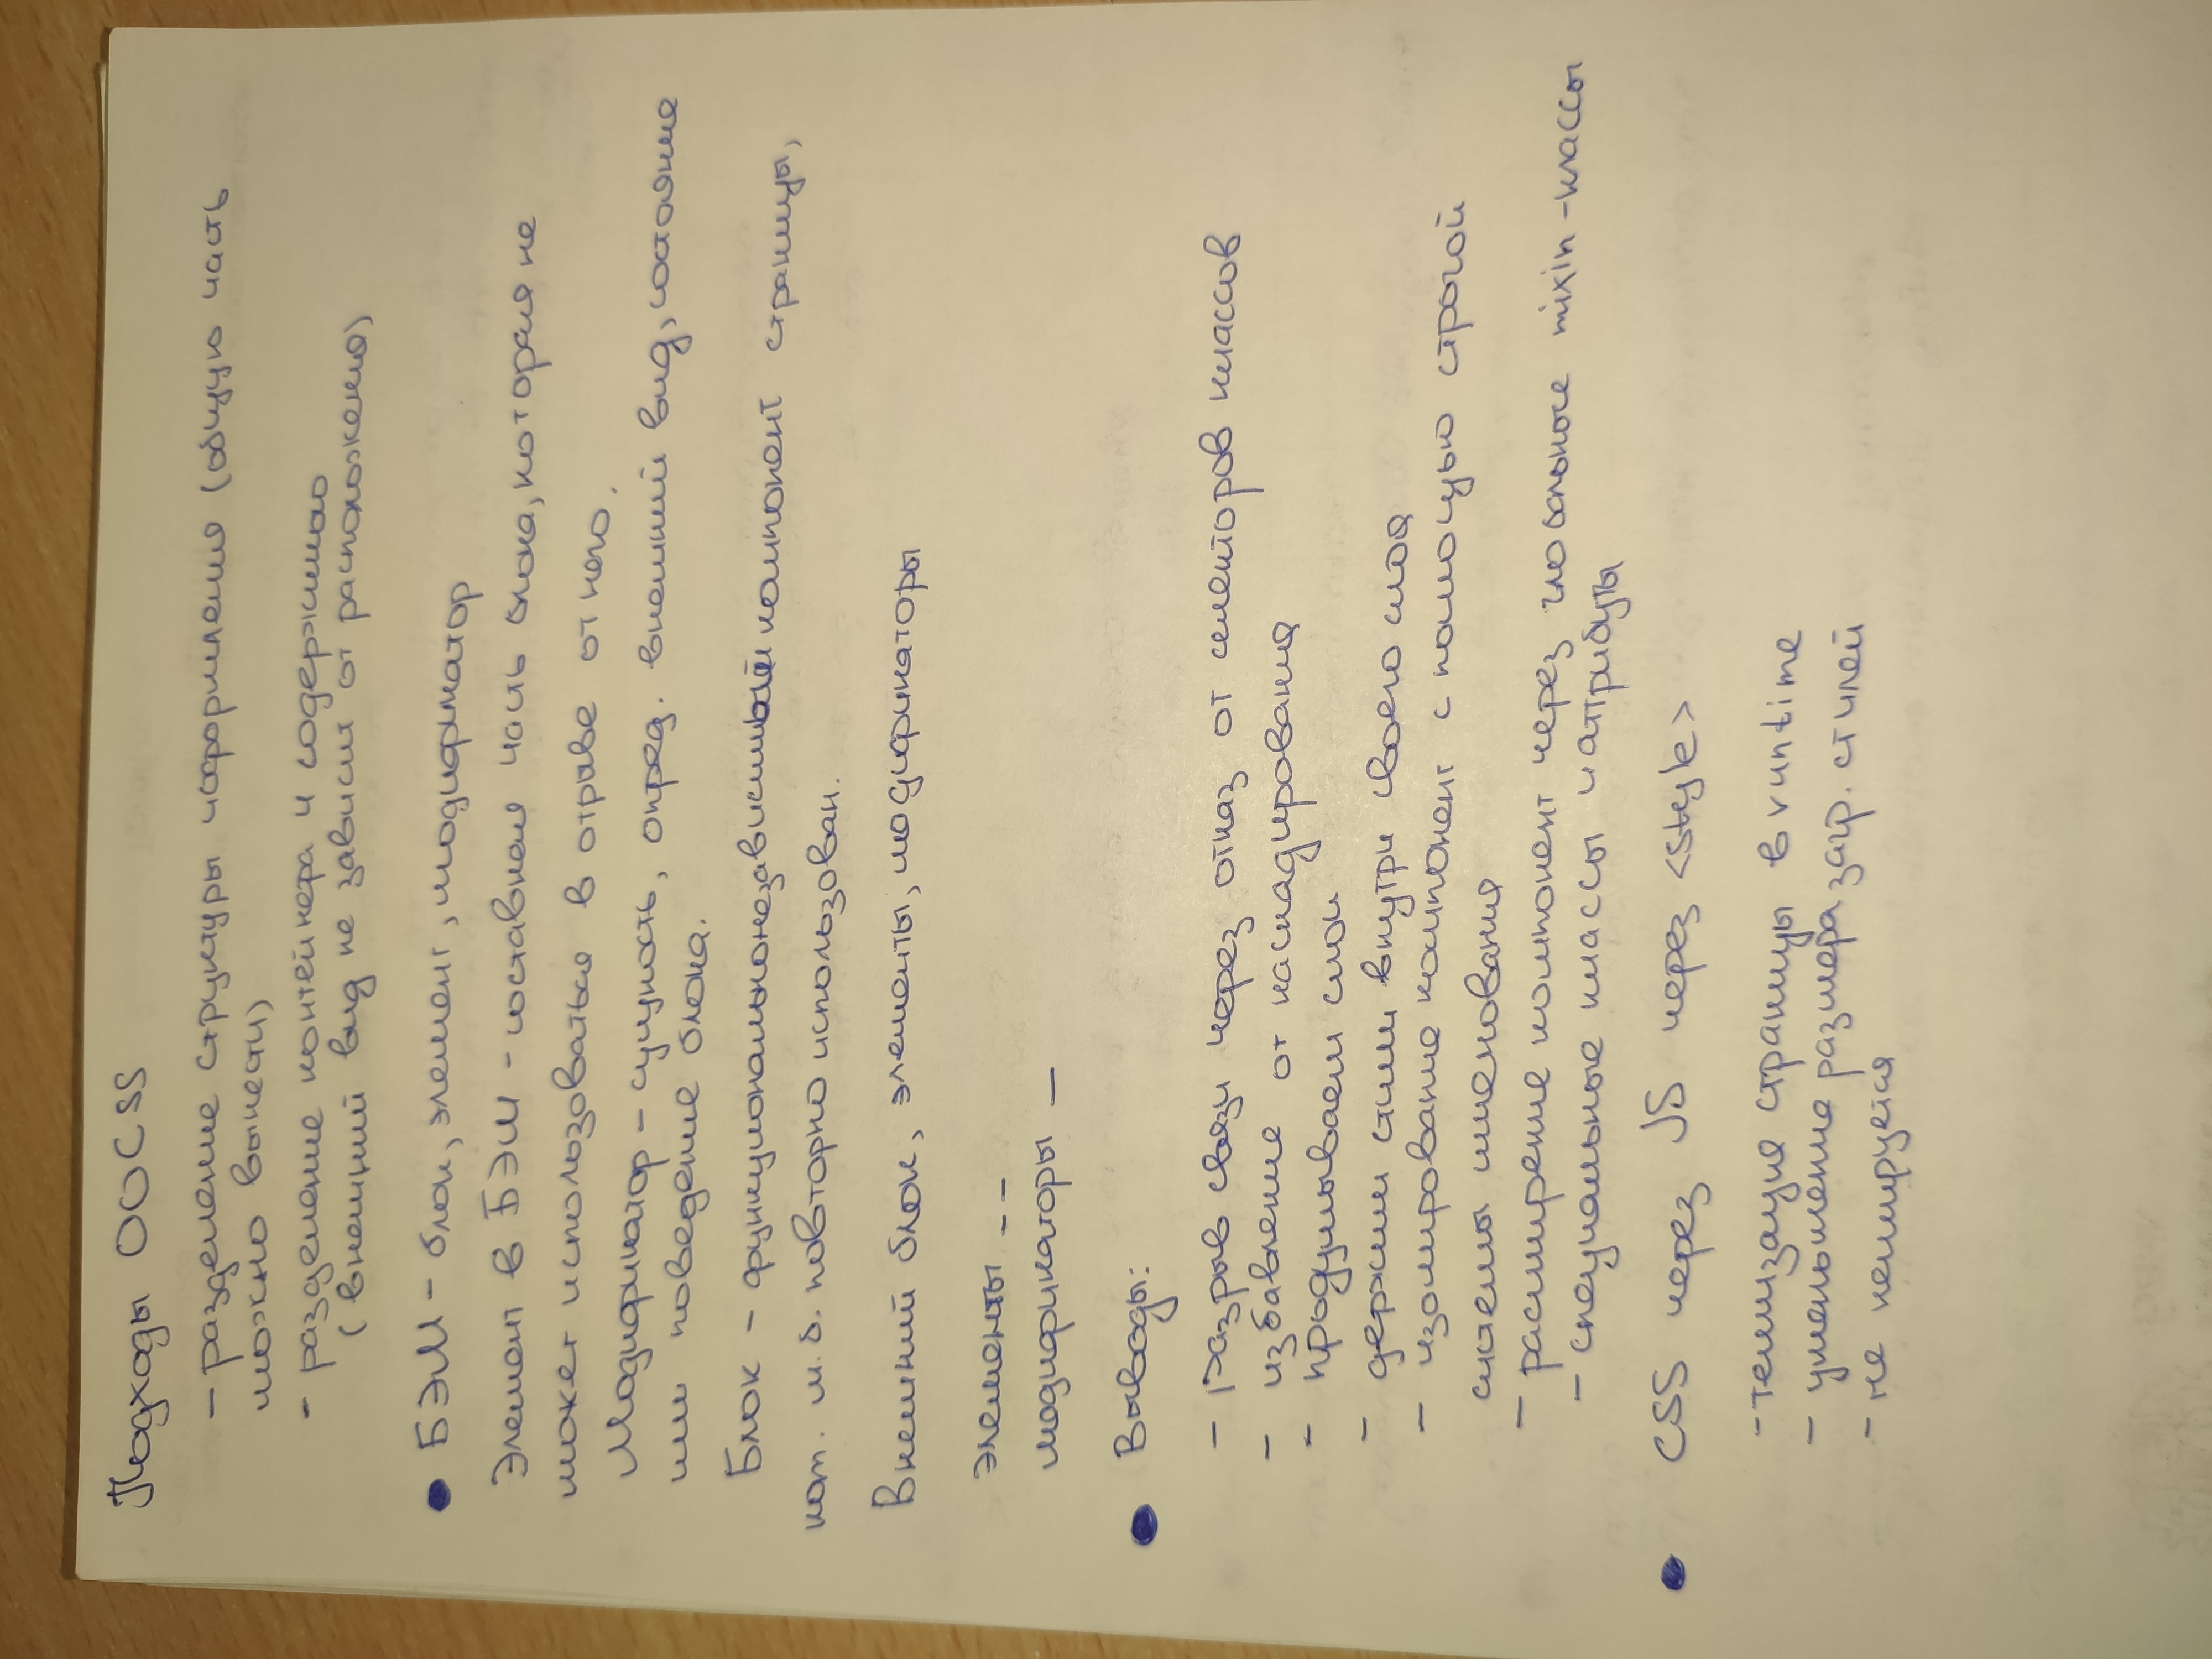 Подходы OOCSS
- разделение структуры и оформления (общую часть
можно вынести)
- разделение контейнера и содержимого
(внешний вид не зависит от расположения)
• БЭМ - блок, элемент, модификатор
Элемент в БЭМ - составная часть блока, которая не
может использоваться в отрыве от него.
Модификатор - сущность, опред. внешний вид, состояние
или поведение блока.
Блок - функционально независимый компонент страницы,
кот. м.б. повторно использован.
Внешний блок, элементы, модификаторы
элементы _ _
модификаторы _
• Выводы:
- разрыв связи через отказ от селекторов классов
- избавление от каскадирования
- продумываем слои
- держим стили внутри своего слоя
- изолирование компонент с помощью строгой
системы именования
- расширение компонент через глобальные mixin-классы
- специальные классы и аттрибуты
• CSS через JS через <style>
- темизация страницы в runtime
- уменьшение размера загр. стилей
- не кешируется